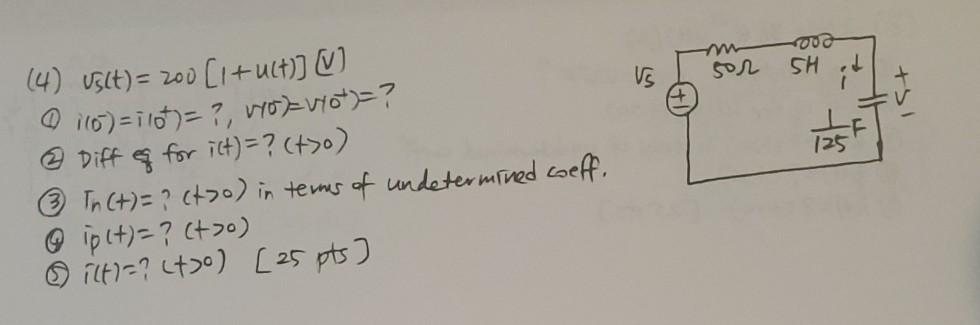 (4) Vs(t) = 200 [1+u(t)] [V]
① i(0⁻)=i(0⁺)=?, v(0⁻)=v(0⁺)=?
② Diff eq for i(t)=? (t>0)
③ in(t)=? (t>0) in terms of undetermined coeff.
④ ip(t)=? (t>0)
⑤ i(t)=? (t>0) [25 pts]
Vs
+
50Ω 5H i↓
+
V
-
1/125 F